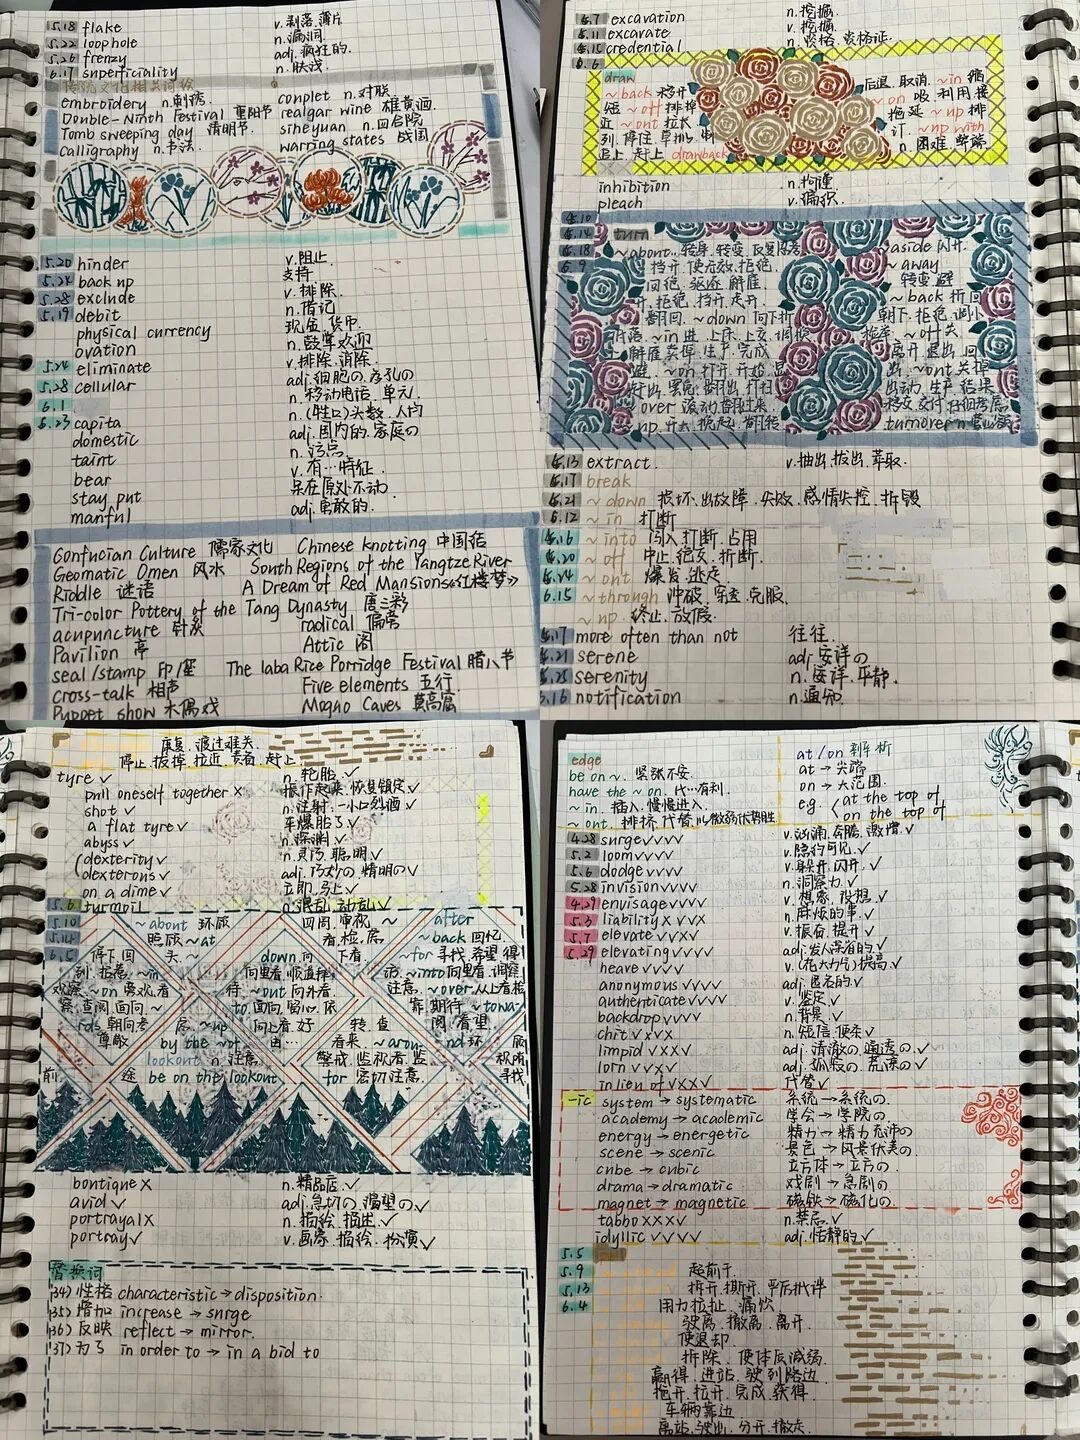 5.18 flake v.剥落.薄片
5.22 loophole n.漏洞.
5.26 frenzy adj.疯狂的.
6.17 superficiality n.肤浅.
传统文化相关词组
embroidery n.刺绣. couplet n.对联
Double-Ninth Festival 重阳节. realgar wine 雄黄酒.
Tomb sweeping day 清明节. siheyuan n.四合院
calligraphy n.书法. warring states 战国
5.20 hinder v.阻止.
5.24 back up 支持.
5.28 exclude v.排除.
5.19 debit n.借记
physical currency 现金.货币.
ovation n.鼓掌欢迎
5.24 eliminate v.排除.消除.
5.28 cellular adj.细胞の.
6.1 n.移动电话.单元.
6.23 capita n.(牲口)头数.人均
domestic adj.国内的.家庭の
taint n.污点
bear v.有…特征.
stay put 呆在原处不动.
manful adj.勇敢的.
Confucian Culture 儒家文化 Chinese knotting 中国结
Geomatic Omen 风水 South Regions of the Yangtze River
Riddle 谜语 A Dream of Red Mansions《红楼梦》
Tri-color Pottery of the Tang Dynasty 唐三彩
acupuncture 针灸 radical 偏旁
Pavilion 亭 Attic 阁
seal/stamp 印/ The laba Rice Porridge Festival 腊八节
cross-talk 相声 Five elements 五行
Puppet show 木偶戏 Mogao Caves 莫高窟
5.7 excavation n.挖掘.
5.11 excavate v.挖掘.
5.15 credential n.资格.资格证.
6.6
draw 后退.取消.~in 缩
~back 移开 ~on 吸.利用.接
短.~off 排掉 拖延 ~up 排
近 ~out 拉长
列.停住.草拟. 订.~up with
追上.赶上 drawback n.困难.弊端.
inhibition n.拘谨
pleach v.编织.
5.10
5.14 turn
5.18 ~about 转身.转变.反复思考 aside 闪开.
6.9 挡开.使无效.拒绝. ~away
回绝.驱逐.解雇 转变.避
开.拒绝.挡开.走开 ~back 折回
翻回.~down 向下折 朝下.拒绝.调小
~in 进.上床.上交.调换 ~off 关.
解雇.卖掉.生产.完成 离开.退出.回
避.~on 打开.开始 出.~out 关掉
over 滚动.翻过来 移交.交付.仔细考虑
~up 开大.挽起.翻转 turnover n.营业额
5.13 extract. v.抽出.拔出.萃取.
5.17 break
5.21 ~down 损坏.出故障.失败.感情失控.拆毁
6.12 ~in 打断
5.16 ~into 闯入.打断.占用
5.20 ~off 中止.绝交.折断.
5.24 ~out 爆发.逃走.
6.15 ~through 冲破.穿透.克服.
~up 终止.放假.
5.17 more often than not 往往.
5.21 serene adj.安详の
5.25 serenity n.安详.平静.
6.16 notification n.通知.
康复.渡过难关.
停止.拔掉.拉近.责备.赶上
tyre ✓ n.轮胎.✓
pull oneself together x 振作起来.恢复镇定✓
shot ✓ n.注射.一小口烈酒✓
a flat tyre✓ 车爆胎了✓
abyss ✓ n.深渊✓
(dexterity✓ n.灵巧.聪明✓
dexterous✓ adj.巧妙の.精明の✓
on a dime✓ 立即.马上✓
5.6 turmoil n.混乱.动乱✓
5.10 ~about 环顾 四周.审视. ~ after
5.14 照顾~at 看.检.房 ~back 回忆.
6.5 停下.回 头~ down 向 下看. ~for 寻找.希望.得
向里看.顺道拜 访.~into 向里看.调察
观察.~on 旁观.看 待.~out 向外看. 注意.~over 从上看检
察.查阅.面向.~ to 面向.留心.依 靠.期待.~towa-
rds 朝向.考 虑.~up 向上看.好 转.查 阅.看望
尊敬 by the ~of 由… 看来.~aroun- nd 环 顾
lookout n.注意. 警戒.监视者.监 视所.
前 途 be on the lookout for 密切注意. 寻找.
boutique x n.精品店.✓
avid ✓ adj.急切の.渴望の.✓
portrayal x n.描绘.描述.✓
portray✓ v.画象.描绘.扮演✓
替换词
134) 性格 characteristic→disposition.
135) 增加 increase→surge
136) 反映 reflect→mirror.
137) 为了 in order to→in a bid to
edge
be on ~. 紧张不安.
have the ~on. 比…有利.
~in. 插入.慢慢进入.
~out. 排挤.代替.以微弱优势胜
at/on 剖析
at→尖端
on→大范围.
eg. at the top of
on the top of
4.28 surge✓✓✓✓ v.汹涌.奔腾.激增✓
5.2 loom✓✓✓✓ v.隐约可见.✓
5.6 dodge✓✓✓✓ v.躲开.闪开.✓
5.28 invision✓✓✓✓ n.洞察力.✓
4.29 envisage✓✓✓✓ v.想象.设想.✓
5.3 liability x✓✓x n.麻烦的事.✓
5.7 elevate ✓✓x✓ v.振奋.提升✓
5.29 elevating✓✓✓✓ adj.发人深省的✓
heave ✓✓✓✓ v.(花大力气)提高.✓
anonymous ✓✓✓✓ adj.匿名的.✓
authenticate✓✓✓✓ v.鉴定✓
backdrop✓✓✓✓ n.背景.✓
chit✓x✓x n.短信.便条✓
limpid ✓xx✓ adj.清澈の.通透の.✓
lorn ✓✓x✓ adj.孤寂の.荒凉の✓
in lieu of ✓xx✓ 代替✓
-ic system→systematic 系统→系统の.
academy→academic 学会→学院の
energy→energetic 精力→精力充沛の
scene→scenic 景色→风景优美の.
cube→cubic 立方体→立方の.
drama→dramatic 戏剧→急剧の
magnet→magnetic 磁铁→磁化の.
tabbo xxx✓ n.禁忌.✓
idyllic ✓✓✓✓ adj.恬静的✓
5.5
5.9 起前于.
5.13 拆开.撕开.严厉批评
6.4 用力拉扯.痛饮
驶离.撤离.离开.
使退却
拆除.使体质减弱.
赢得.进站.驶到路边
拖开.拉开.完成.获得.
车辆靠边
离站.驶出.分开.撤走.